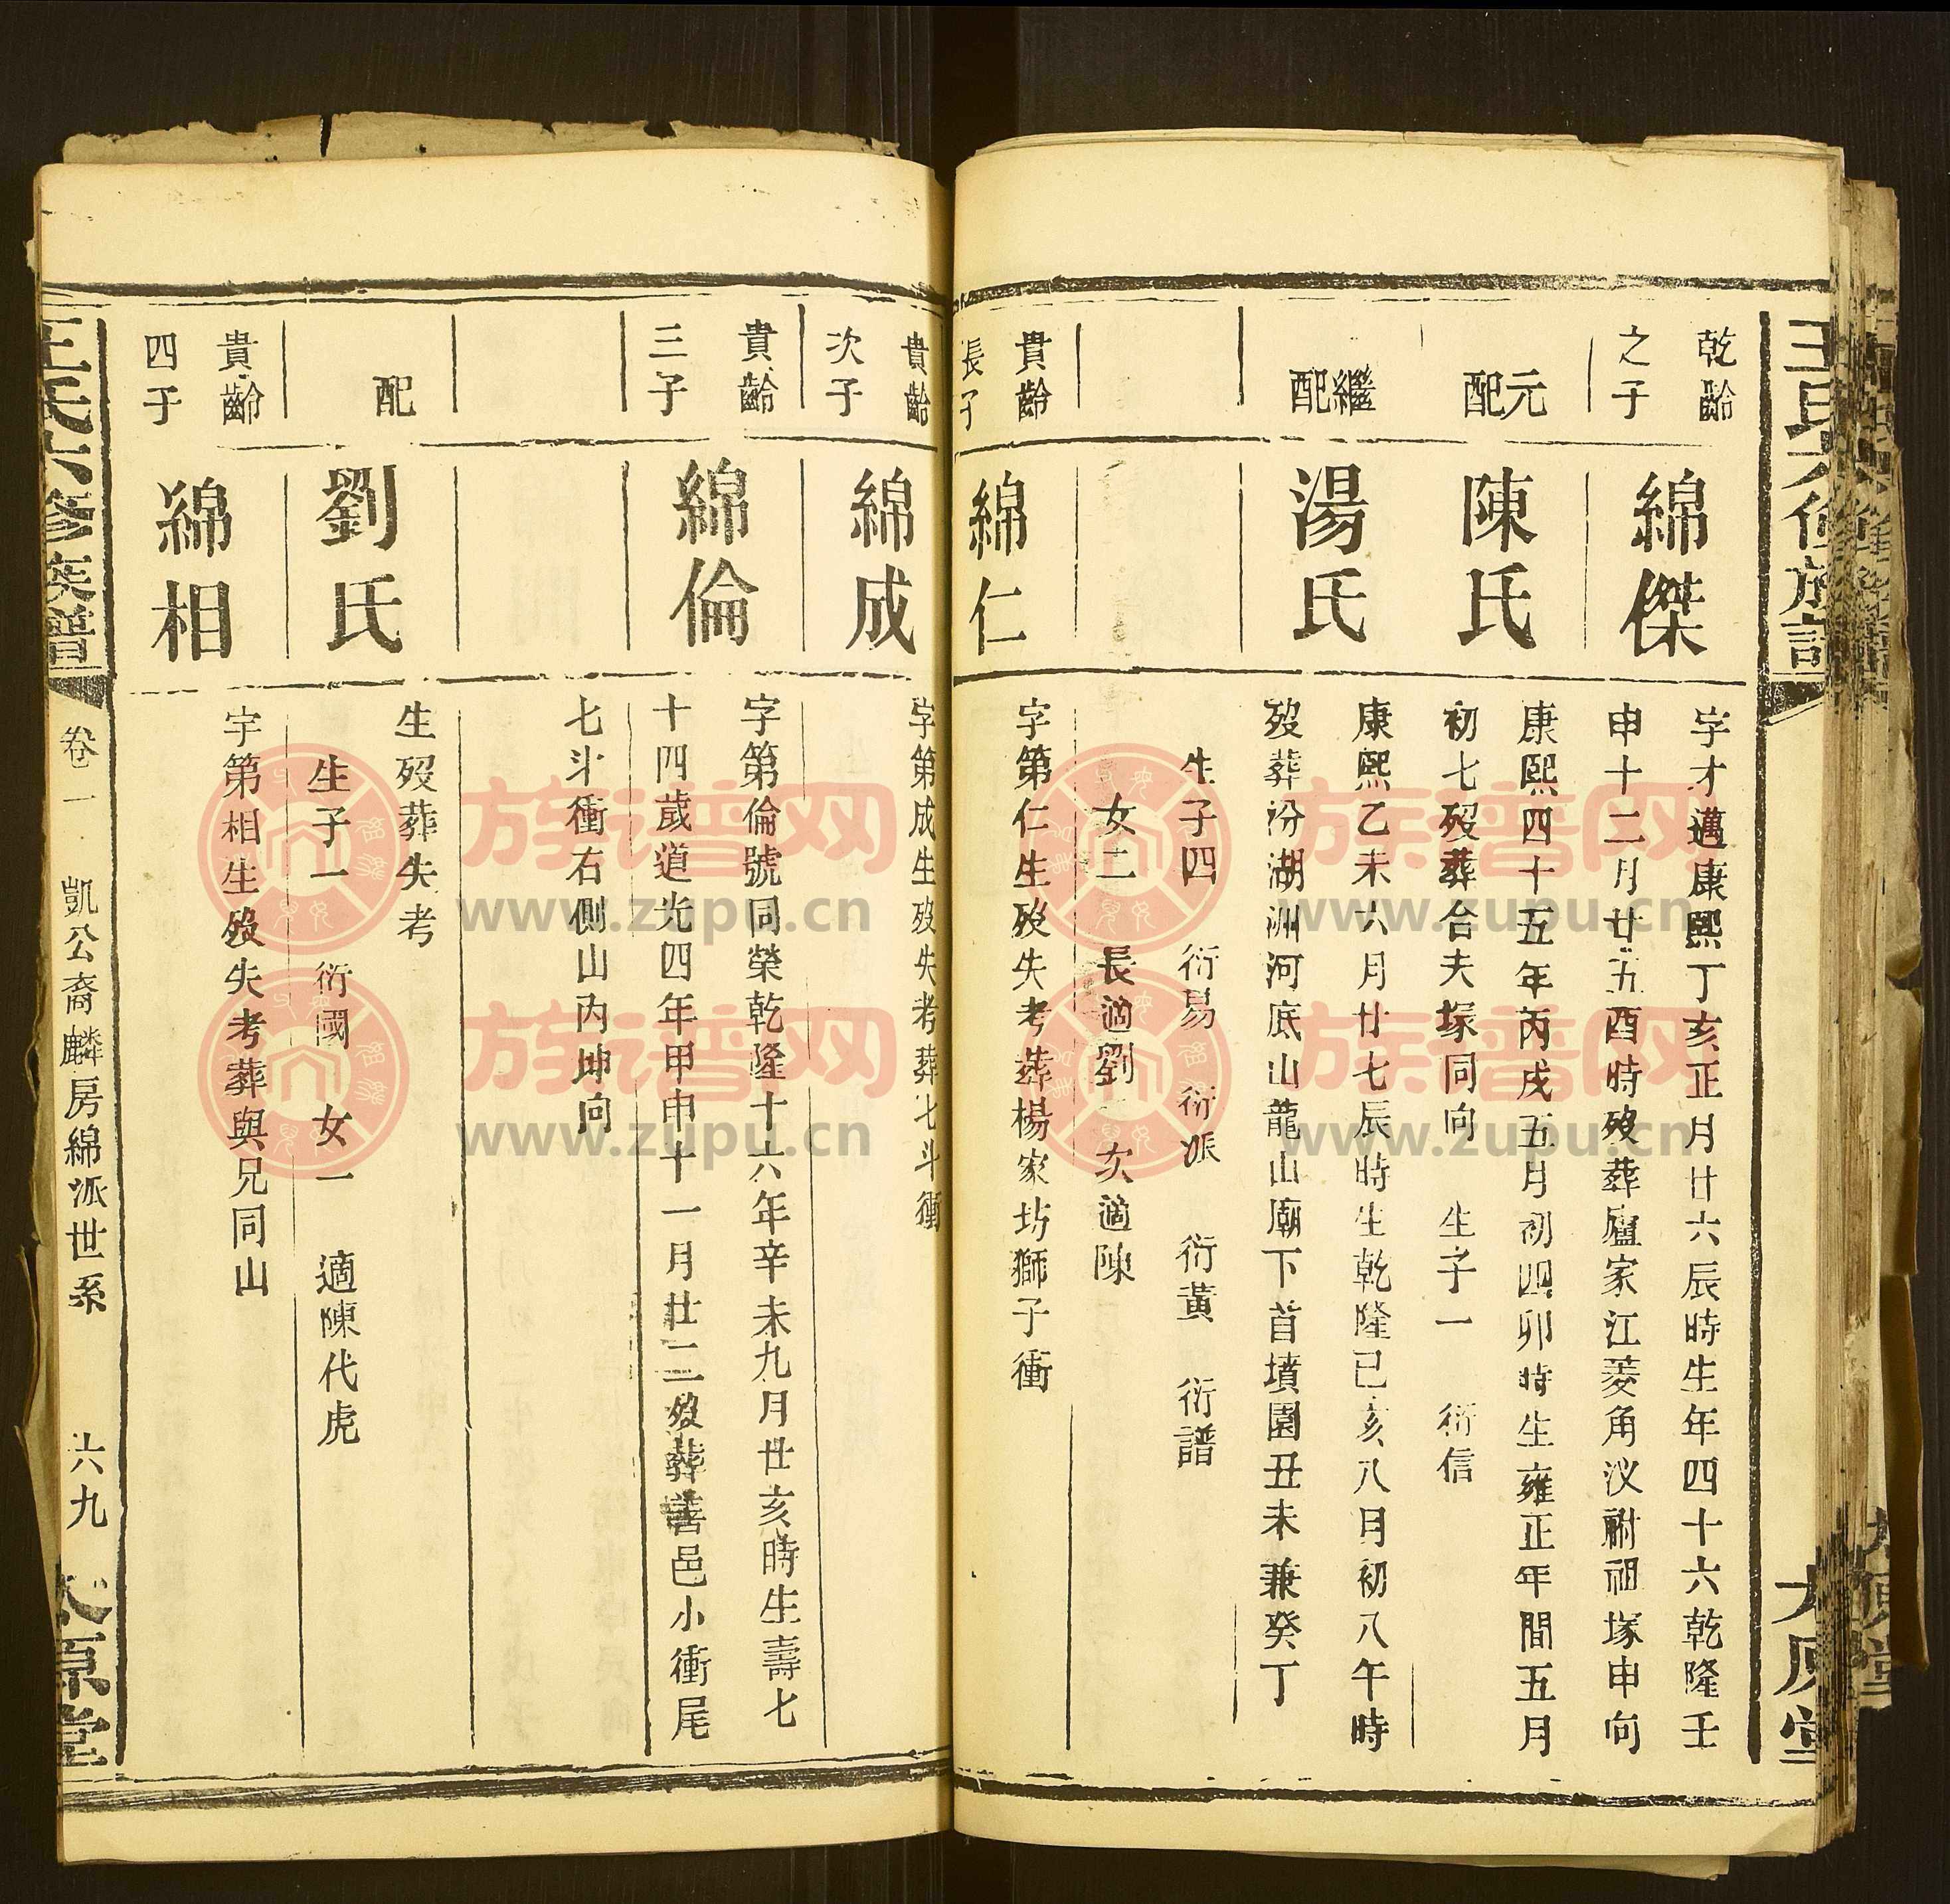 王氏六修族譜
太原堂
乾齡
之子
綿傑
字才邁康熙丁亥正月廿六辰時生年四十六乾隆壬
申十二月廿五酉時歿葬廬家江菱角汊祔祖塚申向
元配
陳氏
康熙四十五年丙戌五月初四卯時生雍正年間五月
初七歿葬合夫塚同向 生子一 衍信
繼配
湯氏
康熙乙未六月廿七辰時生乾隆己亥八月初八午時
歿葬汾湖洲河底山龍山廟下首墳園丑未兼癸丁
生子四 衍易 衍派 衍黃 衍譜
女二 長適劉 次適陳
貴齡
長子
綿仁
字第仁生歿失考葬楊家坊獅子衝
貴齡
次子
綿成
字第成生歿失考葬七斗衝
貴齡
三子
綿倫
字第倫號同榮乾隆十六年辛未九月廿亥時生壽七
十四歲道光四年甲申十一月廿二歿葬善邑小衝尾
七斗衝右側山丙坤向
配
劉氏
生歿葬失考
生子一 衍國 女一 適陳代虎
貴齡
四子
綿相
字第相生歿失考葬與兄同山
王氏六修族譜
卷一 凱公裔麟房綿派世系 六九
太原堂
族谱网
www.zupu.cn
族谱网
www.zupu.cn
族谱网
www.zupu.cn
族谱网
www.zupu.cn